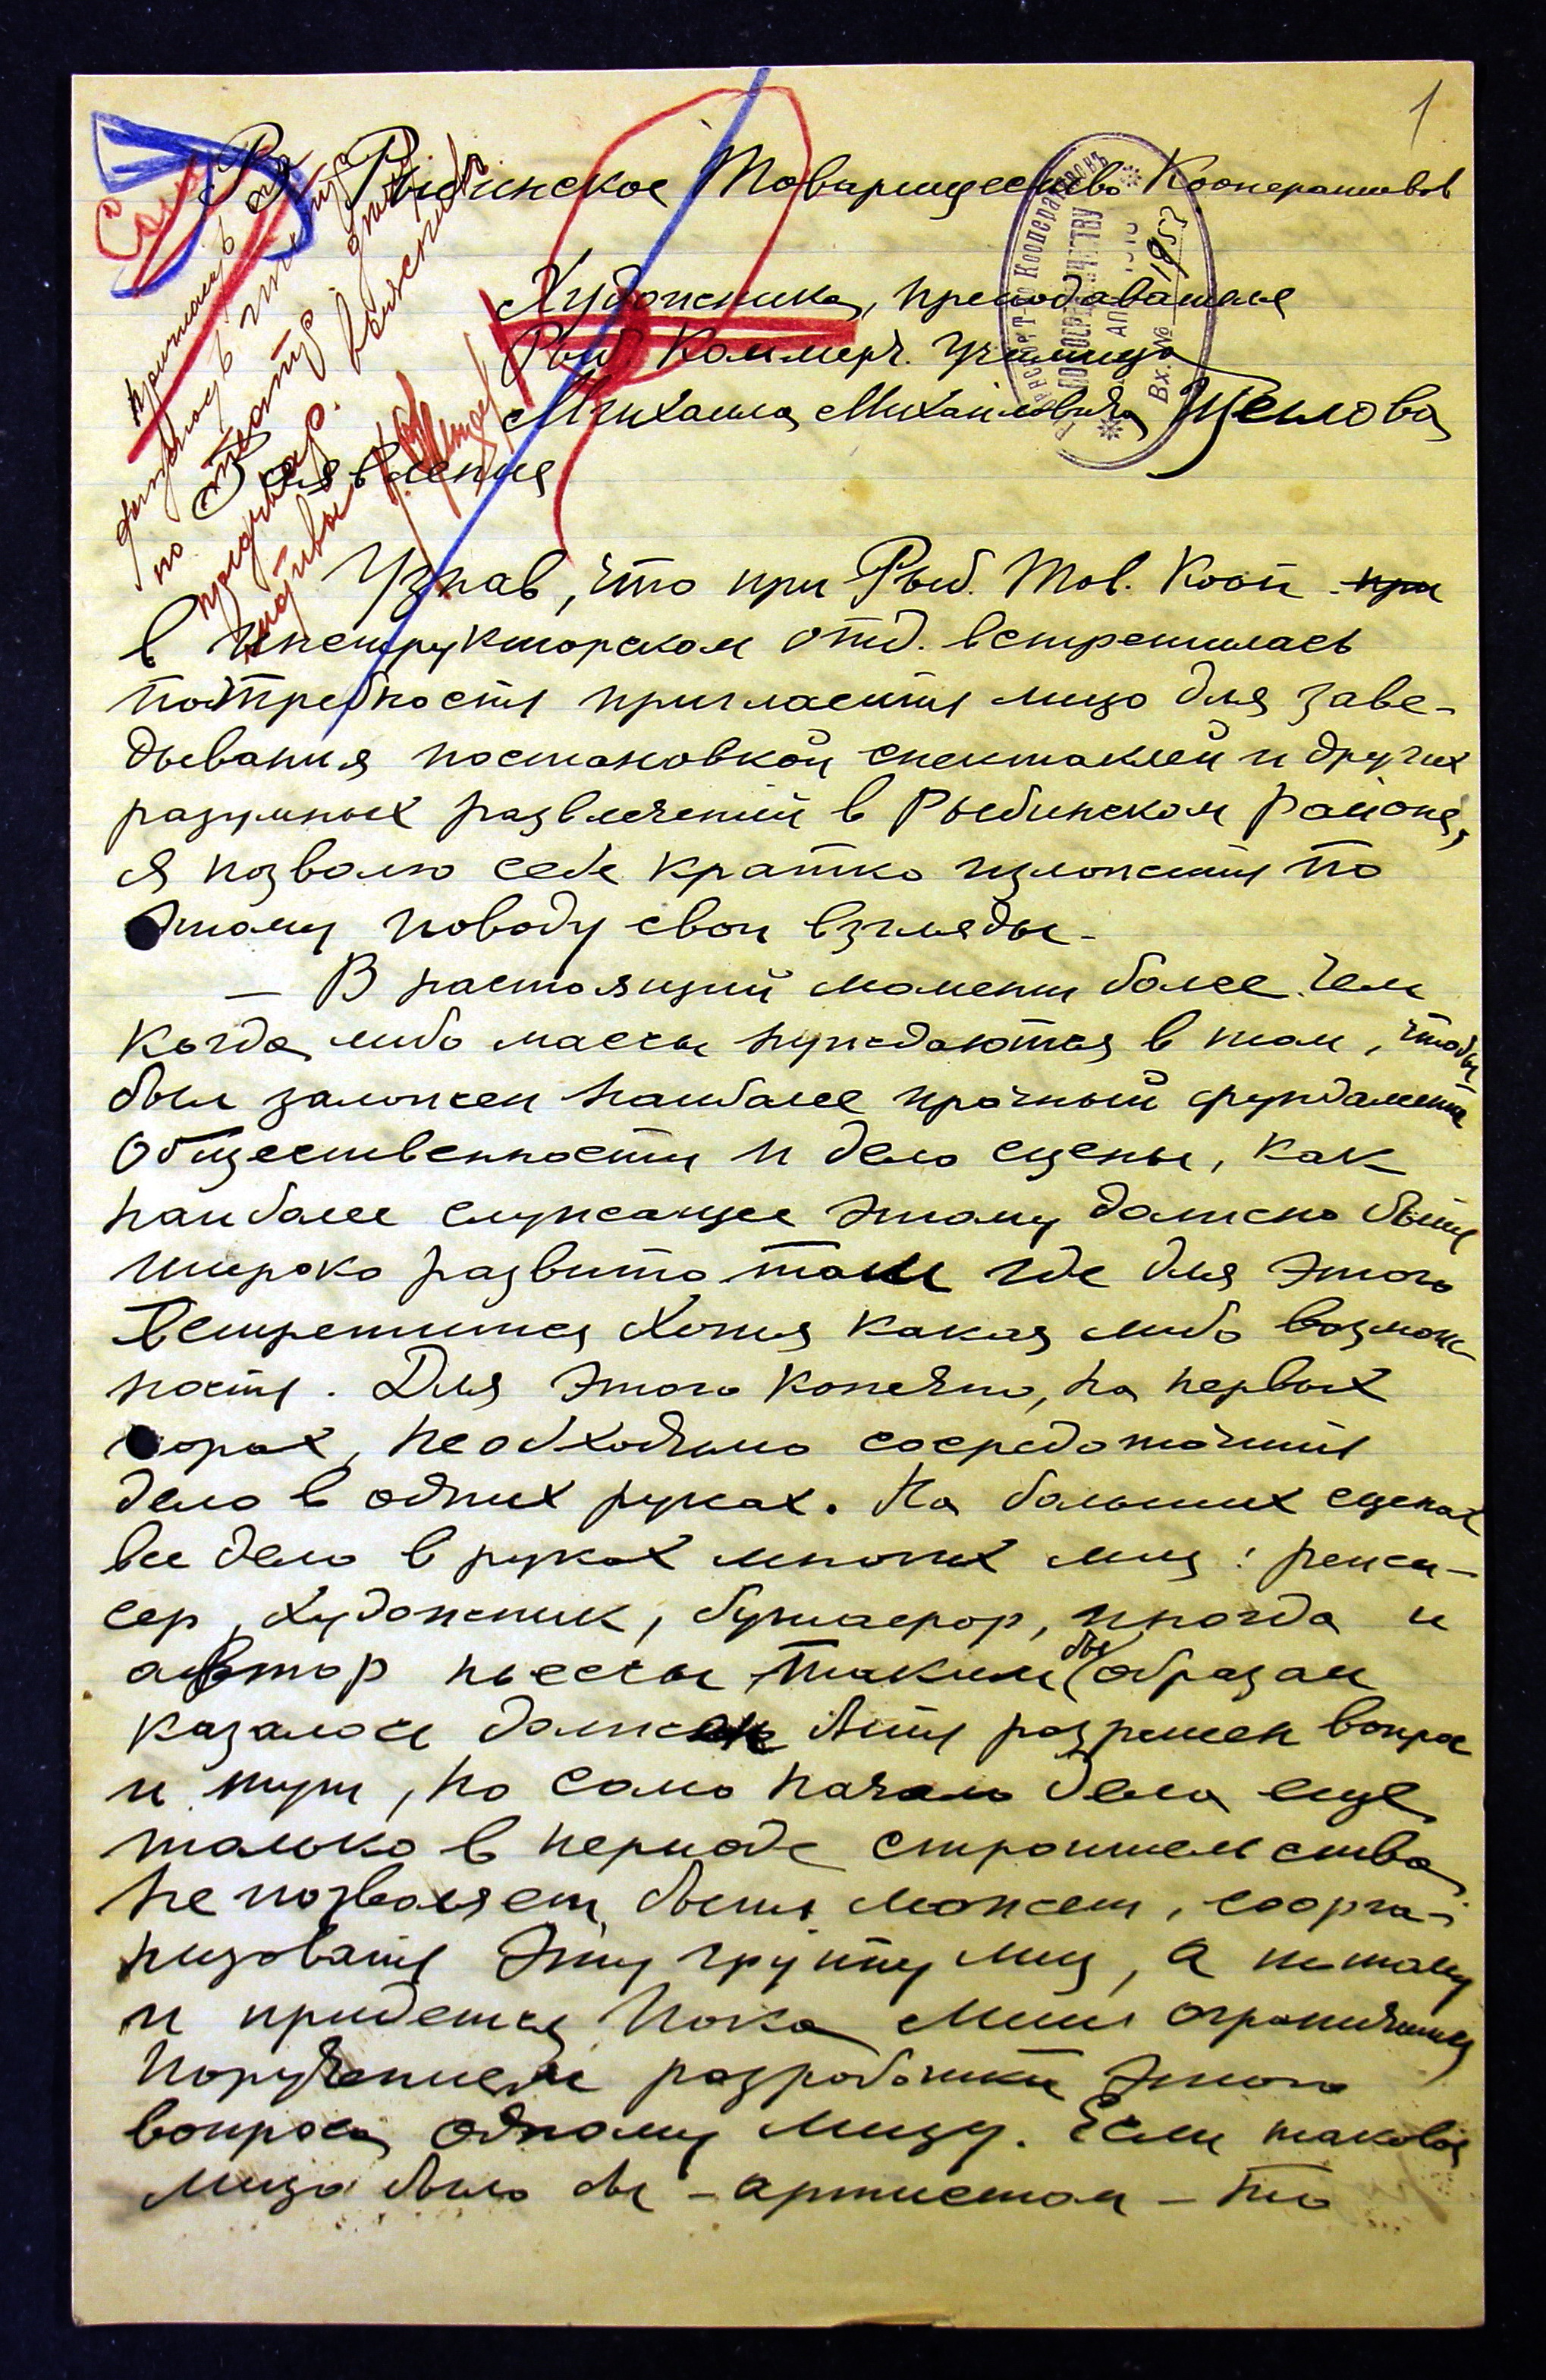 1
В Рыбинское Товарищество Кооперативов
Художника, преподавателя
Рыб Коммерч. Училища
Михаила Михайловича Щеглова
Заявление
Вх. № 1953
Узнав, что при Рыб. Тов. Кооп при
в инструкторском отд. встретилась
потребность пригласить лицо для заве-
дывания постановкой спектаклей и других
разумных развлечений в Рыбинском районе,
я позволю себе кратко изложить по
этому поводу свои взгляды -
— В настоящий момент более чем
когда либо массы нуждаются в том, чтобы
был заложен наиболее прочный фундамент
общественности и дело сцены, как
наиболее служащее этому должно быть
широко развито там где для этого
встретится хотя какая либо возмож
ность. Для этого конечно, на первых
порах, необходимо сосредоточить
дело в одних руках. На больших сценах
все дело в руках многих лиц: режи-
сер, художник, бутафор, иногда и
автор пьессы таким бы образом
казалось должен быть разрешен вопрос
и тут, но само начало дела еще
только в периоде строительства
не позволяет, быть может, сорга-
низовать эту группу лиц, а потому
и придется пока лишь ограничиться
поручением разработки этого
вопроса одному лицу. Если таковое
лицо было бы - артистом - то